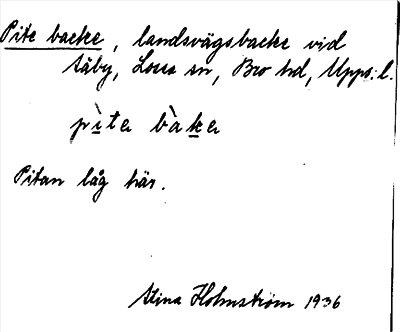 Pite backe, landsvägsbacke vid
Råby, Lossa sn, Bro hd, Upps. l.
pìta bàka
Pitan låg här.
Stina Holmström 1936